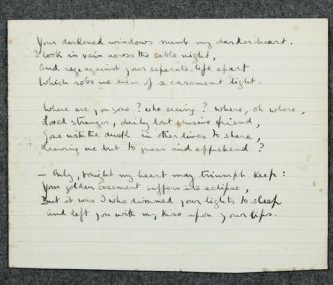 Your darkened windows numb my darker heart.
I look in vain across the sable night,
And rage against your separate life apart
Which robs me even of a casement light.
Where are you gone? Who seeing? Where, oh where,
Loved stranger, daily but elusive friend,
Gone with the dusk in other lives to share,
Leaving me but to guess and apprehend?
— Only, tonight my heart may triumph keep:
Your golden casement suffers its eclipse,
But it was I who dimmed your lights to sleep
and left you with my kiss upon your lips.